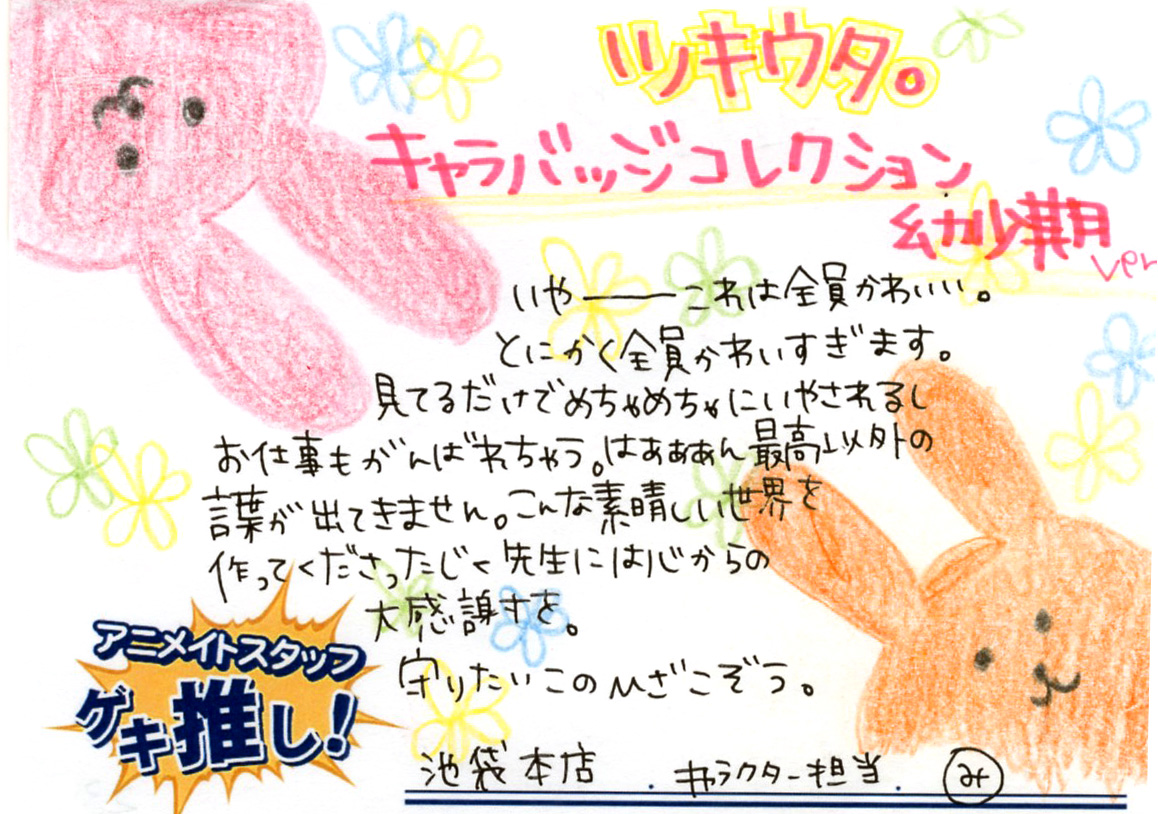 ツキウタ。
キャラバッジコレクション
幼少期
ver
いや――これは全員かわいい。
とにかく全員かわいすぎます。
見てるだけでめちゃめちゃにいやされるし
お仕事もがんばれちゃう。はぁぁぁん最高以外の
言葉が出てきません。こんな素晴しい世界を
作ってくださったじく先生には心からの
大感謝を。
守りたいこのひざこぞう。
アニメイトスタッフ
ゲキ推し!
池袋本店 . キャラクター担当. み